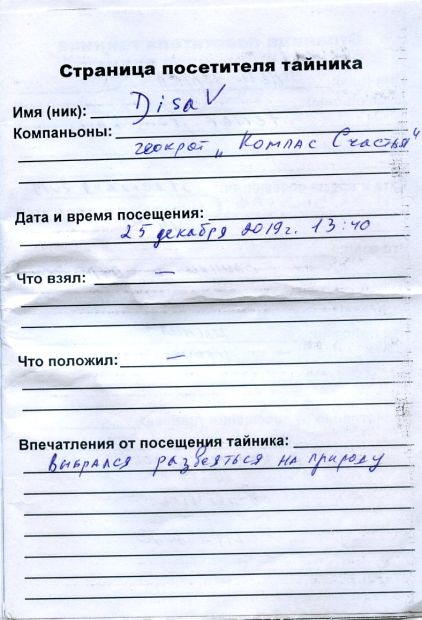 Страница посетителя тайника
Имя (ник): DisaV
Компаньоны:
геокрот „Компас Счастья"
Дата и время посещения:
25 декабря 2019г. 13:40
Что взял: —
Что положил: —
Впечатления от посещения тайника:
Выбрался развеяться на природу